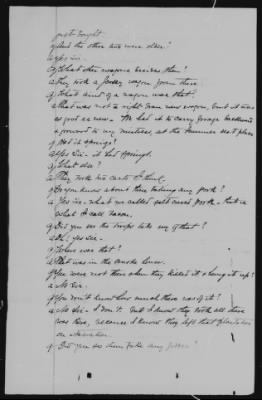 just bought.
Q. And the other two were older?
A. Yes sir.
Q. What other wagons besides them?
A. They took a Jersey wagon from there.
Q. What kind of a wagon was that?
A. That was not a right bran new wagon, but it was
as good as new. We had it to carry forage backwards
& forward to my mistress, at the summer seat place
Q. Had it springs?
A. Yes Sir - it had springs.
Q. What else?
A. They took two carts I think.
Q. Do you know about their taking any pork?
A. Yes sir - what we called salt cured pork - that is
what I call bacon.
Q. Did you see the troops take any of that?
A. Oh, yes sir -
Q. Where was that?
A. That was in the smoke house.
Q. You were not there when they killed it & hung it up?
A. No Sir.
Q. You don't know how much there was of it?
A. No Sir - I don't. But I know they took all there
was there, because I know they left that plantation
on
Q. Did you see them take any